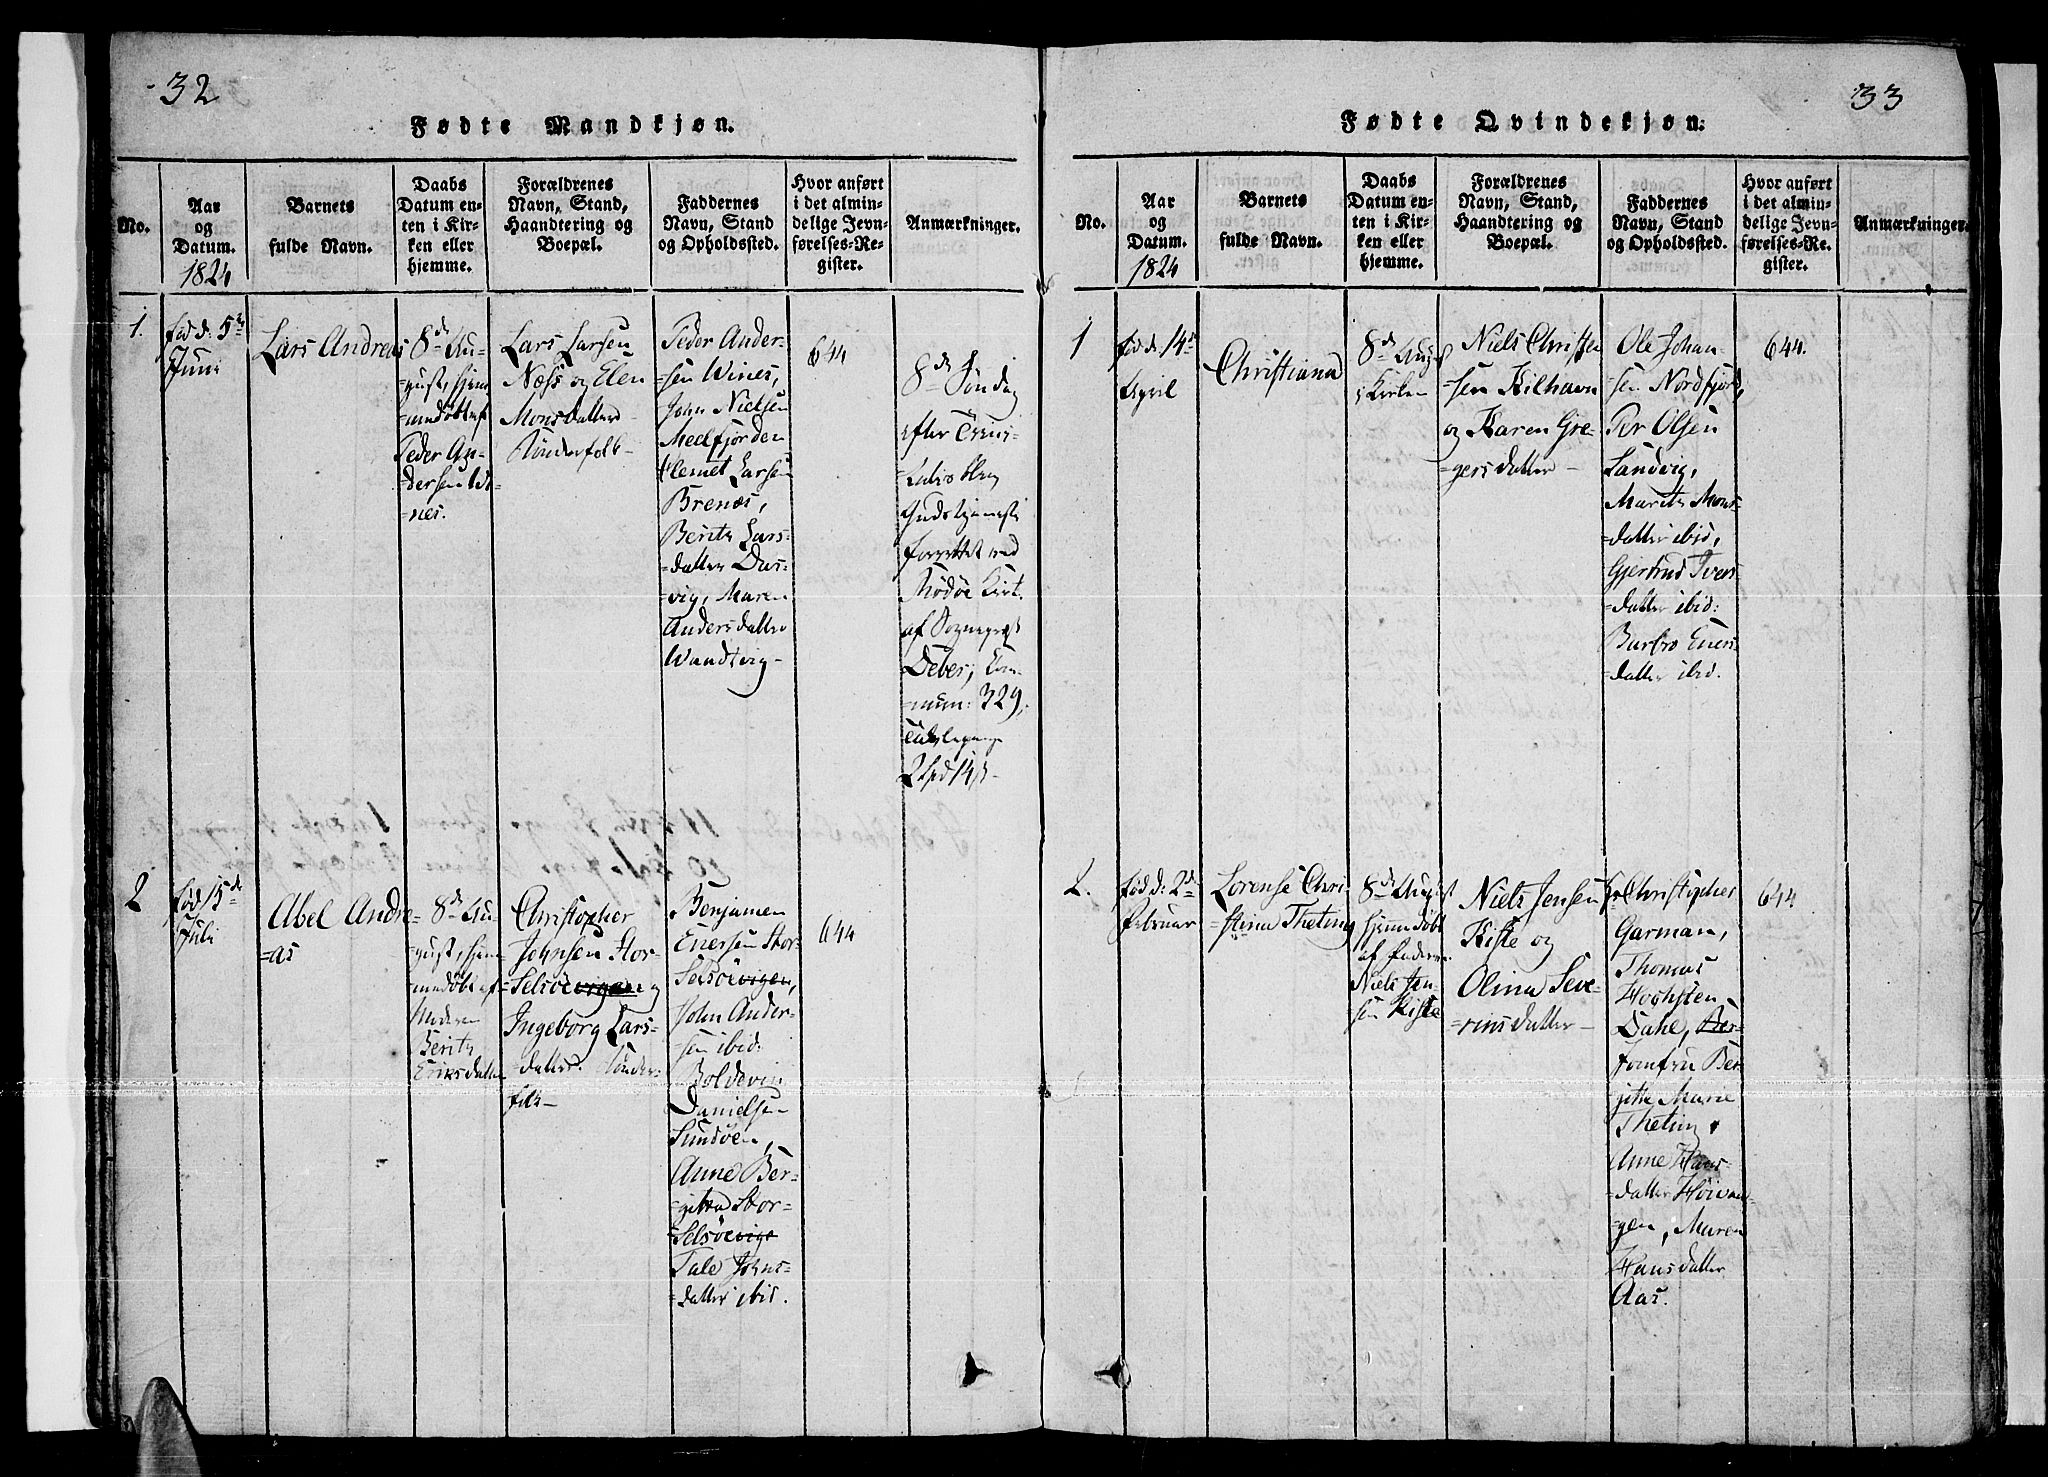 32
Fødte Mandkjøn.
No.
Aar
og
Datum.
1824
Barnets
fulde Navn.
Daabs
Datum en-
ten i Kir-
ken eller
hjemme.
Forældrenes
Navn, Stand,
Haandtering og
Boepæl.
Faddernes
Navn, Stand
og Opholdssted.
Hvor anført
i det almin-
delige Jevn-
førelses-Re-
gister.
Anmærkninger.
1.
fød d: 5te
Juni
Lars Andreas
8de Au-
=gust, hjem
=medøbt af
Peder An-
dersen Wi-
=nes.
Lars Larsen
Næss og Elen
Monsdatter
Bønderfolk-
Peder Ander-
=sen Wines,
John Nielsen
Meelfjorden
Clemet Larsen
Brenæs,
Berith Lars-
=datter
=vig, Maren
Andersdatter
Wandvig-
644
8de Søndag
efter Trini-
=tatis blev
Gudstjeneste
forrettet ved
Rödöe Kirke
af Sognepræst
Deber, Com-
=mun: 329,
2 Spd 14 β-
2
fød 15de
Juli
Abel Andre-
=as
8de Au-
=gust, hjem
=medøbt af
Berith
Eriksdatter
Christopher
Johnsen Stor-
=Selsöevigen og
Ingeborg Lars-
=datter. Bønder-
folk-
Benjamen
Enersen Stor-
Selsöevigen,
John Ander-
=sen ibid:
Boldevin
Danielsen
Sundöen,
Anne Ber-
=githa Stor-
=Selsöevige
Tale Johns-
=datter ibid.
644
33
Fødte Qvindekjøn.
No.
Aar
og
Datum.
1824
Barnets
fulde Navn.
Daabs
Datum en-
ten i Kir-
ken eller
hjemme.
Forældrenes
Navn, Stand,
Haandtering og
Boepæl.
Faddernes
Navn, Stand
og Opholdssted.
Hvor anført
i det almin-
delige Jevn-
førelses-Re-
gister.
Anmærkninger.
1
fød d: 14de
April
Christiana
8de August
i Kirken
Niels Christen
=sen Kilhavn
og Karen Gre-
=gersdatter-
Ole Johan-
=sen Nordfjord,
Per Olsen
Sandvig,
Marith Mons-
=datter ibid,
Gjertrud Ivers-
=datter ibid:
Barbro Eners-
=datter ibid.
644.
2.
fød d: 2de
Februar
Lorense Chri-
=stina Theting
8de August
hjemmedøbt
af Faderen
Niels Jen-
sen Kiste
Niels Jensen
Kiste og
Olina Seve-
=rinsdatter-
Hr Christopher
Garman,
Thomas
Hochsten
Dahl, Ber-
Jomfru Ber-
gitte Marie
Theting,
Anne Hans-
=datter Höivaa-
=gen, Maren
Hansdatter
Aas.
644